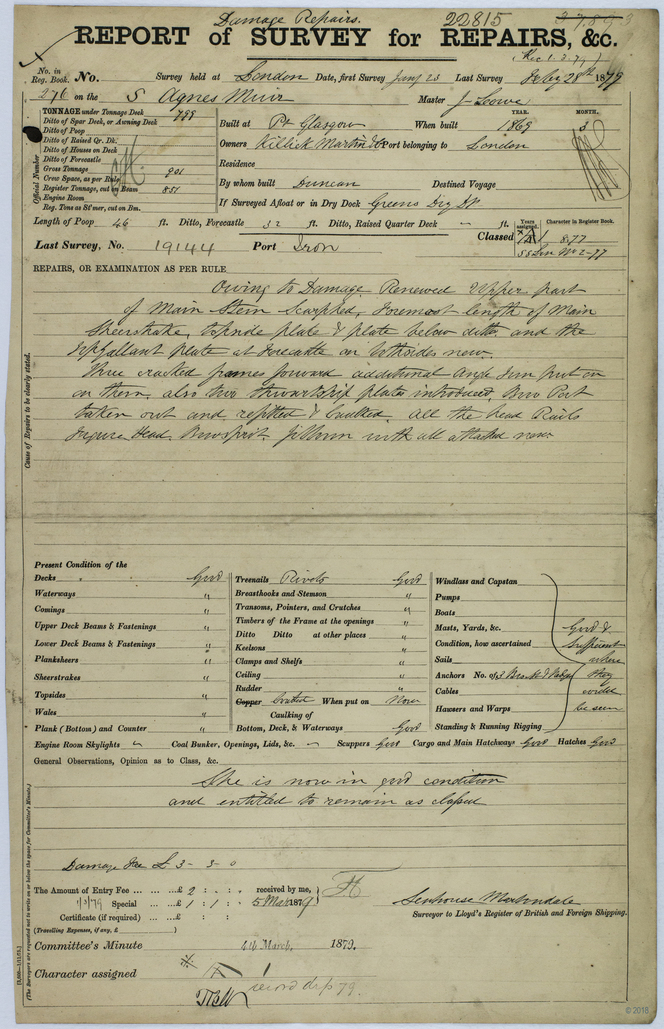 Damage Repairs.
22815
REPORT of SURVEY for REPAIRS, &c.
(Rec 1.3.79)
No. in Reg. Book. No. Survey held at London Date, first Survey Jany 23 Last Survey Feby 28th 1879
276 on the S Agnes Muir Master J. Lowe
TONNAGE under Tonnage Deck 799
Ditto of Spar Deck, or Awning Deck
Ditto of Poop
Ditto of Raised Qr. Dk.
Ditto of Houses on Deck
Ditto of Forecastle
Gross Tonnage 901
Crew Space, as per Rule
Register Tonnage, cut on Beam 851
Engine Room
Reg. Tons as St'mer, cut on Bm.
Official Number
YEAR. MONTH.
Built at Pt Glasgow When built 1869 3
Owners Killick Martin & Co Port belonging to London
Residence
By whom built Duncan Destined Voyage
If Surveyed Afloat or in Dry Dock Greens Dry Dk
Length of Poop 46 ft. Ditto, Forecastle 32 ft. Ditto, Raised Quarter Deck ft.
Years assigned. Character in Register Book.
Classed A 1 8.77
SS Lon No 2-77
Last Survey, No. 19144 Port Iron
REPAIRS, OR EXAMINATION AS PER RULE
Owing to Damage Renewed Upper part
of Main Stem Scarphed, foremost length of Main
Sheerstrake, topside plate & plate below ditto and the
Topgallant plate at Forecastle on bothsides new.
Three cracked frames forward additional Angle Iron put on
on them, also two thwartship plates introduced, Bow Port
taken out and refitted & Caulked. All the head Rails
Figure Head, Bowsprit, jibboom with all attached new.
Cause of Repairs to be clearly stated.
Present Condition of the
Decks Good
Waterways "
Comings "
Upper Deck Beams & Fastenings "
Lower Deck Beams & Fastenings "
Planksheers "
Sheerstrakes "
Topsides "
Wales "
Plank (Bottom) and Counter "
Treenails Rivets Good
Breasthooks and Stemson "
Transoms, Pointers, and Crutches "
Timbers of the Frame at the openings "
Ditto Ditto at other places "
Keelsons "
Clamps and Shelfs "
Ceiling "
Rudder "
Copper Coated When put on Now
Caulking of
Bottom, Deck, & Waterways Good
Windlass and Capstan
Pumps
Boats
Masts, Yards, &c.
Condition, how ascertained
Sails
Anchors No. of
Cables
Hawsers and Warps
Standing & Running Rigging
Good &
Sufficient
where
they
could
be seen
Engine Room Skylights " Coal Bunker, Openings, Lids, &c. Scuppers Good Cargo and Main Hatchways Good Hatches Good
General Observations, Opinion as to Class, &c.
She is now in good condition
and entitled to remain as classed
Damage Fee £ 3 - 3 - 0
The Amount of Entry Fee £ 2 : - : - received by me,
1/3/79 Special £ 1 : 1 : - 5 Mar 1879
Certificate (if required) : :
(Travelling Expenses, if any, £ )
Senhouse Martindale
Surveyor to Lloyd's Register of British and Foreign Shipping.
Committee's Minute 4th March 1879.
Character assigned A 1
record drp 79.
(The Surveyors are requested not to write on or below the space for Committee's Minute.)
© 2018